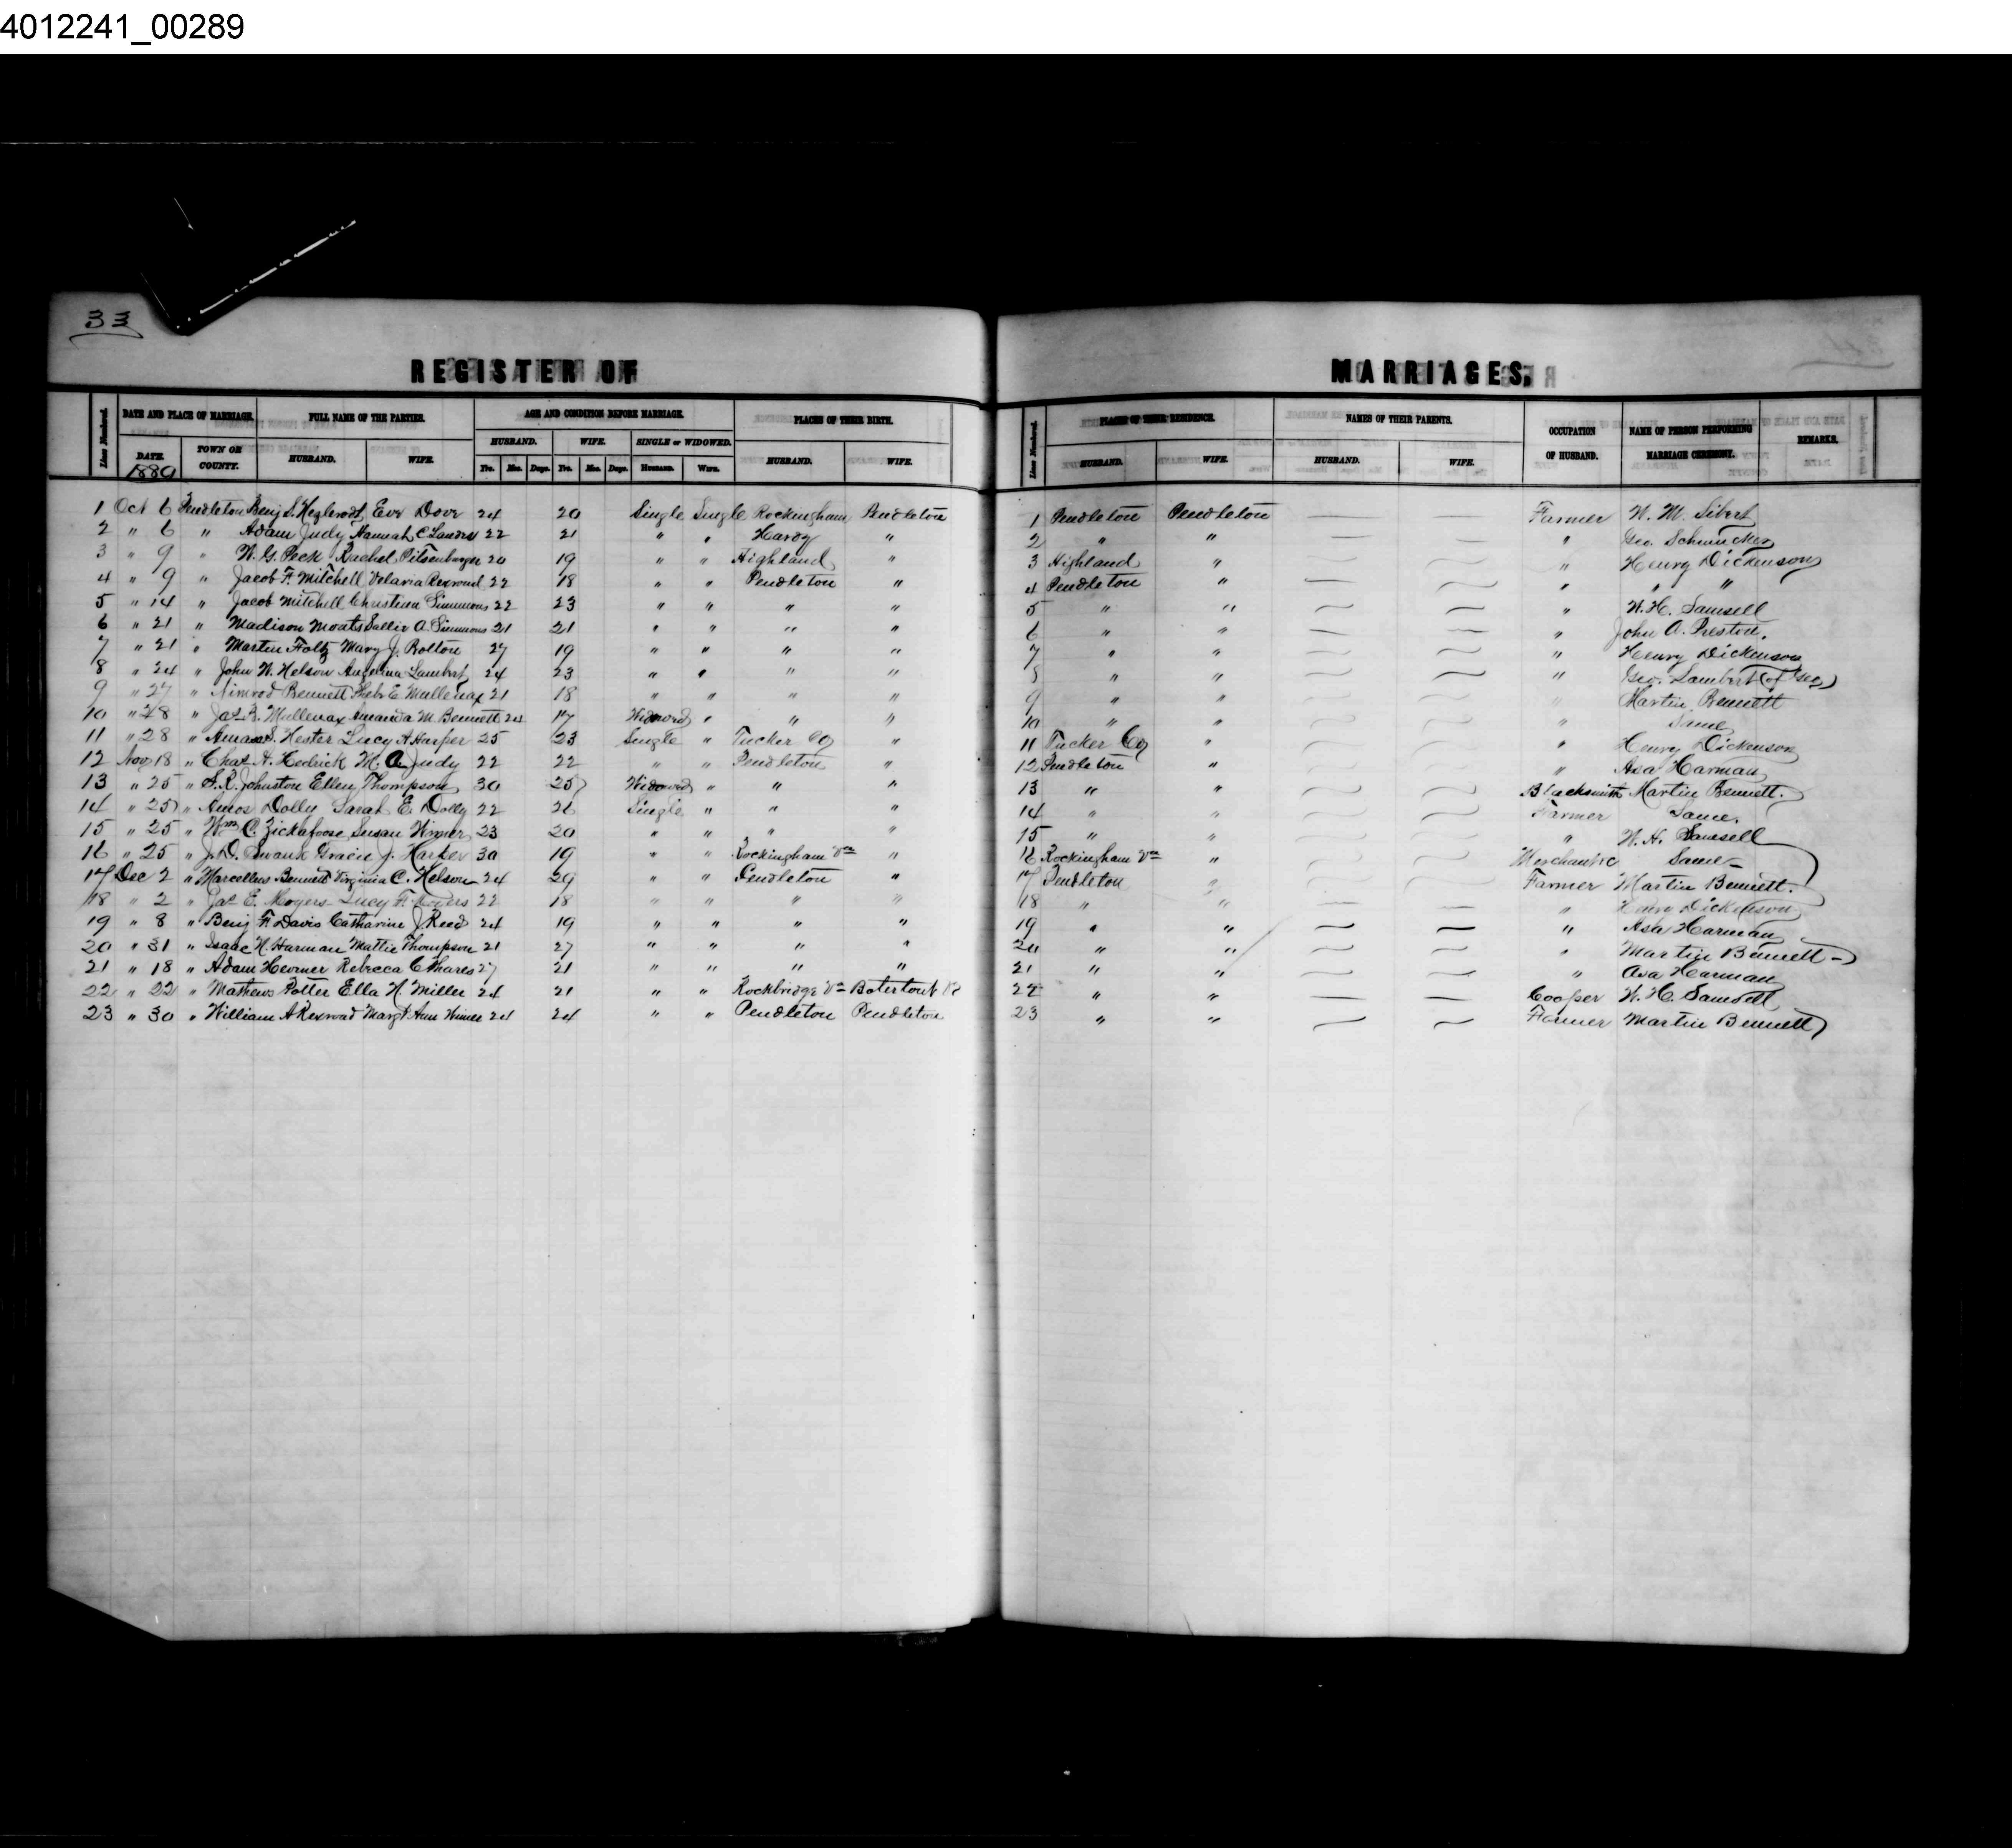 4012241_00289
33
REGISTER OF MARRIAGES.
Lines Numbered. DATE AND PLACE OF MARRIAGE. FULL NAME OF THE PARTIES. AGE AND CONDITION BEFORE MARRIAGE. PLACES OF THEIR BIRTH. Lines Numbered. PLACES OF THEIR RESIDENCE. NAMES OF THEIR PARENTS. OCCUPATION OF HUSBAND. NAME OF PERSON PERFORMING MARRIAGE CEREMONY. REMARKS.
DATE. TOWN OR COUNTY. HUSBAND. WIFE. HUSBAND. WIFE. SINGLE or WIDOWED. HUSBAND. WIFE. HUSBAND. WIFE. HUSBAND. WIFE.
1880 Yrs. Mos. Days. Yrs. Mos. Days. HUSBAND. WIFE.
1 Oct 6 Pendleton Benj S. Eve Dove 24 20 Single Single Rockingham Pendleton 1 Pendleton Pendleton — — Farmer W. M. Sibert
2 " 6 " Adam Judy Hannah C 22 21 " " Hardy " 2 " " — — " Geo. Schmucker
3 " 9 " W. G. Peck Rachel Pitsenbarger 20 19 " " Highland " 3 Highland " — — " Henry Dickenson
4 " 9 " Jacob F. Mitchell Rexroad 22 18 " " Pendleton " 4 Pendleton " — — " " "
5 " 14 " Jacob Mitchell Christina Simmons 22 23 " " " " 5 " " — — " W. H. Samsell
6 " 21 " Madison Moats Sallie A. Simmons 21 21 " " " " 6 " " — — " John A. Preston.
7 " 21 " Martin Foltz Mary J. Bolton 27 19 " " " " 7 " " — — " Henry Dickenson
8 " 24 " John W. Nelson Angelina Lambert 24 23 " " " " 8 " " — — " Geo. Lambert (of Geo)
9 " 27 " Nimrod Bennett Phebe E Mullenax 21 18 " " " " 9 " " — — " Martin Bennett
10 " 28 " Jas B. Mullenax Amanda M. Bennett 24 17 Widowed " " " 10 " " — — " Same
11 " 28 " S. Hester Lucy A Harper 25 23 Single " Tucker Co " 11 Tucker Co " — — " Henry Dickenson
12 Nov 18 " Chas. H. Hedrick M. A Judy 22 22 " " Pendleton " 12 Pendleton " — — " Asa Harman
13 " 25 " S. R. Johnston Ellen Thompson 30 25 Widowed " " " 13 " " — — Blacksmith Martin Bennett.
14 " 25 " Amos Dolly Sarah E. Dolly 22 26 Single " " " 14 " " — — Farmer Same.
15 " 25 " Wm C. Zickafoose Susan Wimer 23 20 " " " " 15 " " — — " W. H. Samsell
16 " 25 " J. D. Swank Gracie J. Harper 30 19 " " Rockingham Va " 16 Rockingham Va " — — Same
17 Dec 2 " Marcellus Bennett Virginia C. Nelson 24 29 " " Pendleton " 17 Pendleton — — Farmer Martin Bennett.
18 " 2 " Jas E. Moyers Lucy F. Moyers 22 18 " " " " 18 " " — — " Henry Dickenson
19 " 8 " Benj F. Davis Catharine J. Reed 24 19 " " " " 19 " " — — " Asa Harman
20 " 31 " Isaac N. Harman Mattie Thompson 21 27 " " " " 20 " " — — " Martin Bennett
21 " 18 " Adam Hevener Rebecca C Phares 27 21 " " " " 21 " " — — " Asa Harman
22 " 22 " Mathews Potter Ella H. Miller 24 21 " " Rockbridge Va Botertout Va 22 " " — — Cooper W. H. Samsell
23 " 30 " William A Rexroad Margt Ann Wimer 24 24 " " Pendleton Pendleton 23 " " — — Farmer Martin Bennett